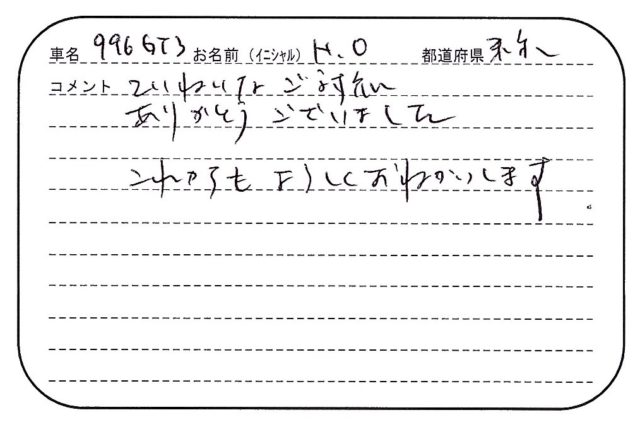 車名 996GT3 お名前(イニシャル) H.O 都道府県
コメント ていねいなご対応
ありがとうございました
これからもよろしくおねがいします